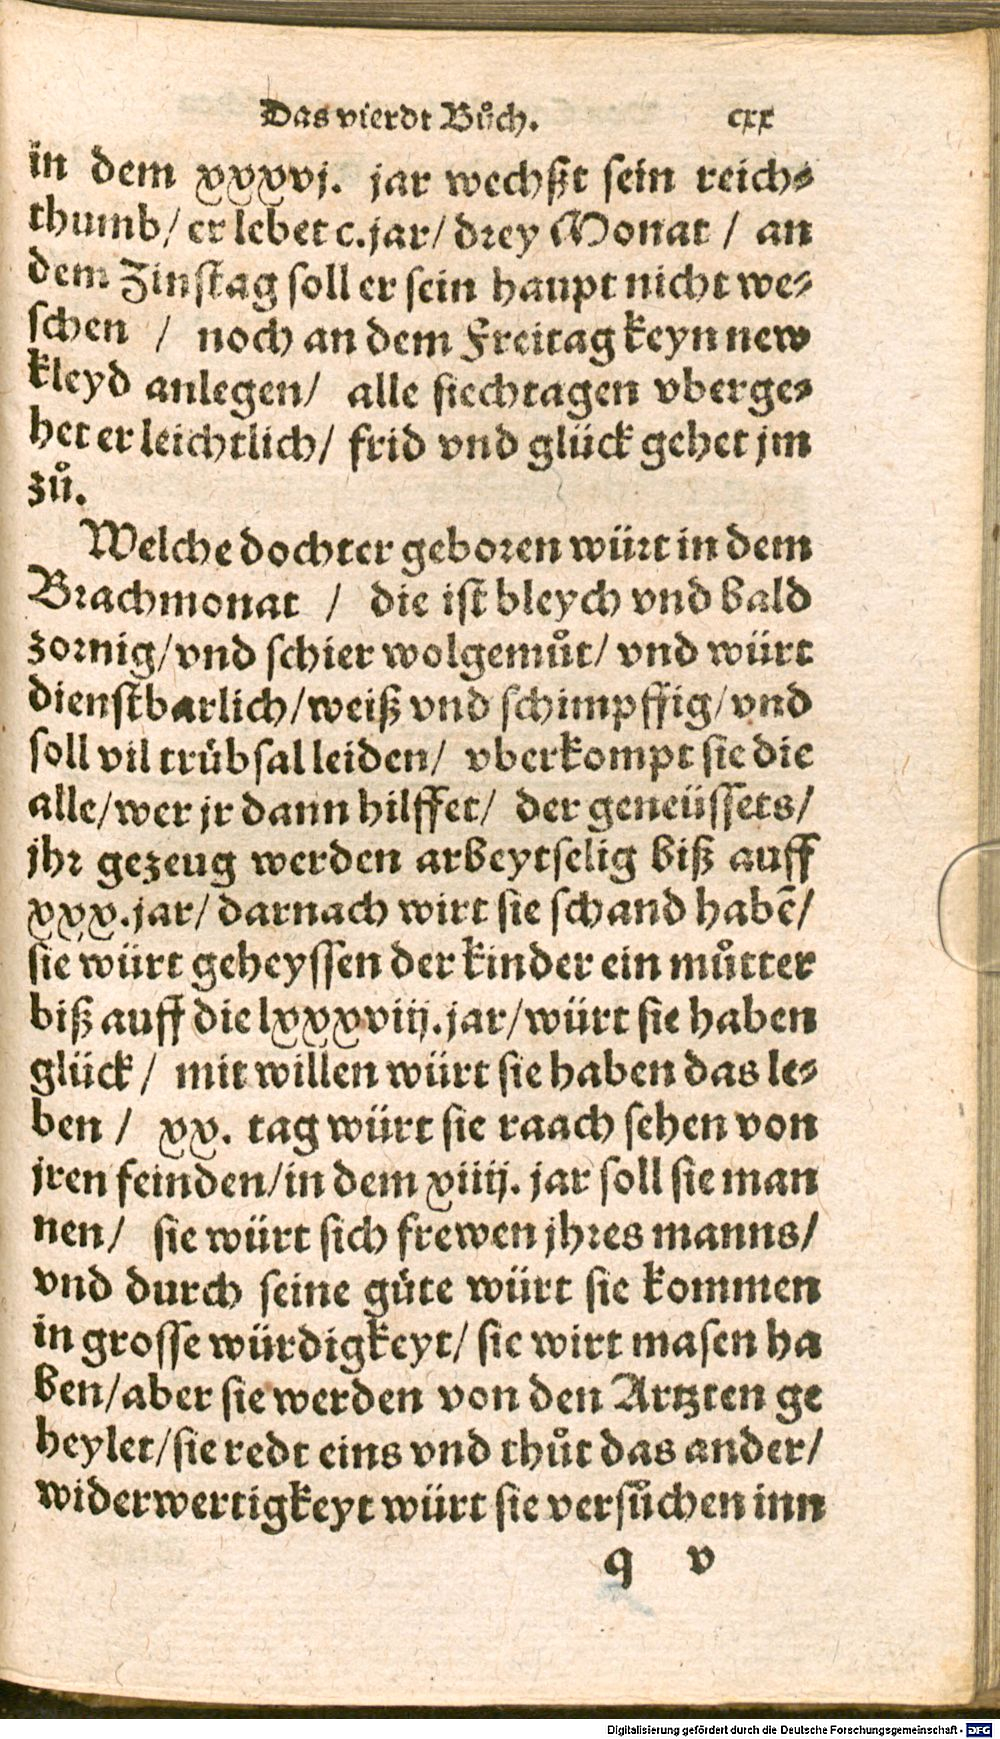 Das vierdt Bůch. cxx
in dem xxxvj. jar wechßt sein reich⸗
thumb/ er lebet c.jar/ drey Monat / an
dem Zinstag soll er sein haupt nicht we⸗
schen / noch an dem Freitag keyn new
kleyd anlegen/ alle siechtagen vberge⸗
het er leichtlich/ frid vnd glück gehet jm
zů.
Welche dochter geboren würt in dem
Brachmonat / die ist bleych vnd bald
zornig/vnd schier wolgemůt/ vnd würt
dienstbarlich/weiß vnd schimpffig/vnd
soll vil trübsal leiden/ vberkompt sie die
alle/wer jr dann hilffet/ der geneüssets/
jhr gezeug werden arbeytselig biß auff
xxx.jar/ darnach wirt sie schand habẽ/
sie würt geheyssen der kinder ein můtter
biß auff die lxxxviij.jar/würt sie haben
glück/ mit willen würt sie haben das le⸗
ben / xx. tag würt sie raach sehen von
jren feinden/in dem xiiij. jar soll sie man
nen/ sie würt sich frewen jhres manns/
vnd durch seine güte würt sie kommen
in grosse würdigkeyt/ sie wirt masen ha
ben/aber sie werden von den Artzten ge
heylet/sie redt eins vnd thůt das ander/
widerwertigkeyt würt sie versůchen inn
q v
Digitalisierung gefördert durch die Deutsche Forschungsgemeinschaft - DFG